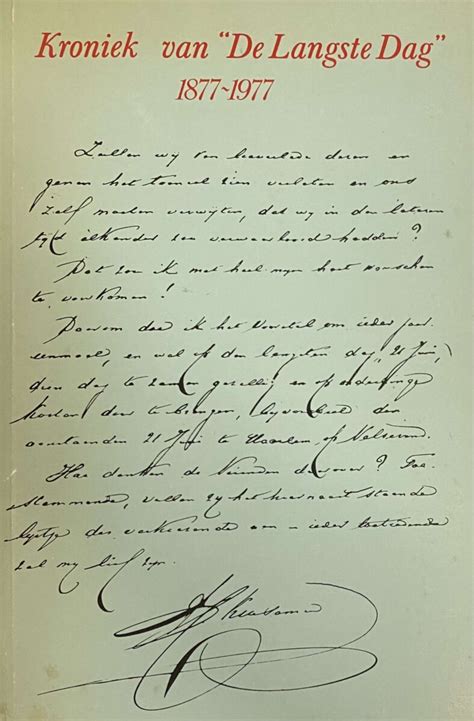 Kroniek van "De Langste Dag"
1877~1977
Zullen wij van lieverlede dezen en
genen het tooneel zien verlaten en ons
zelf moeten verwijten, dat wij in den lateren
tijd elkander zoo verwaarloosd hadden?
Dat zou ik met heel mijn hart wenschen
te voorkomen!
Daarom doe ik het voorstel om ieder jaar
eenmaal, en wel op den langsten dag, 21 Juni,
dien dag te zamen gezellig en op
kosten door te brengen, bijvoorbeeld den
aanstaanden 21 Juni te Haarlem of Velserend.
Hoe denken de Vrienden daarover? Toe
stemmende, willen zij het hiernaast staande
lijstje dan
zal mij lief zijn.